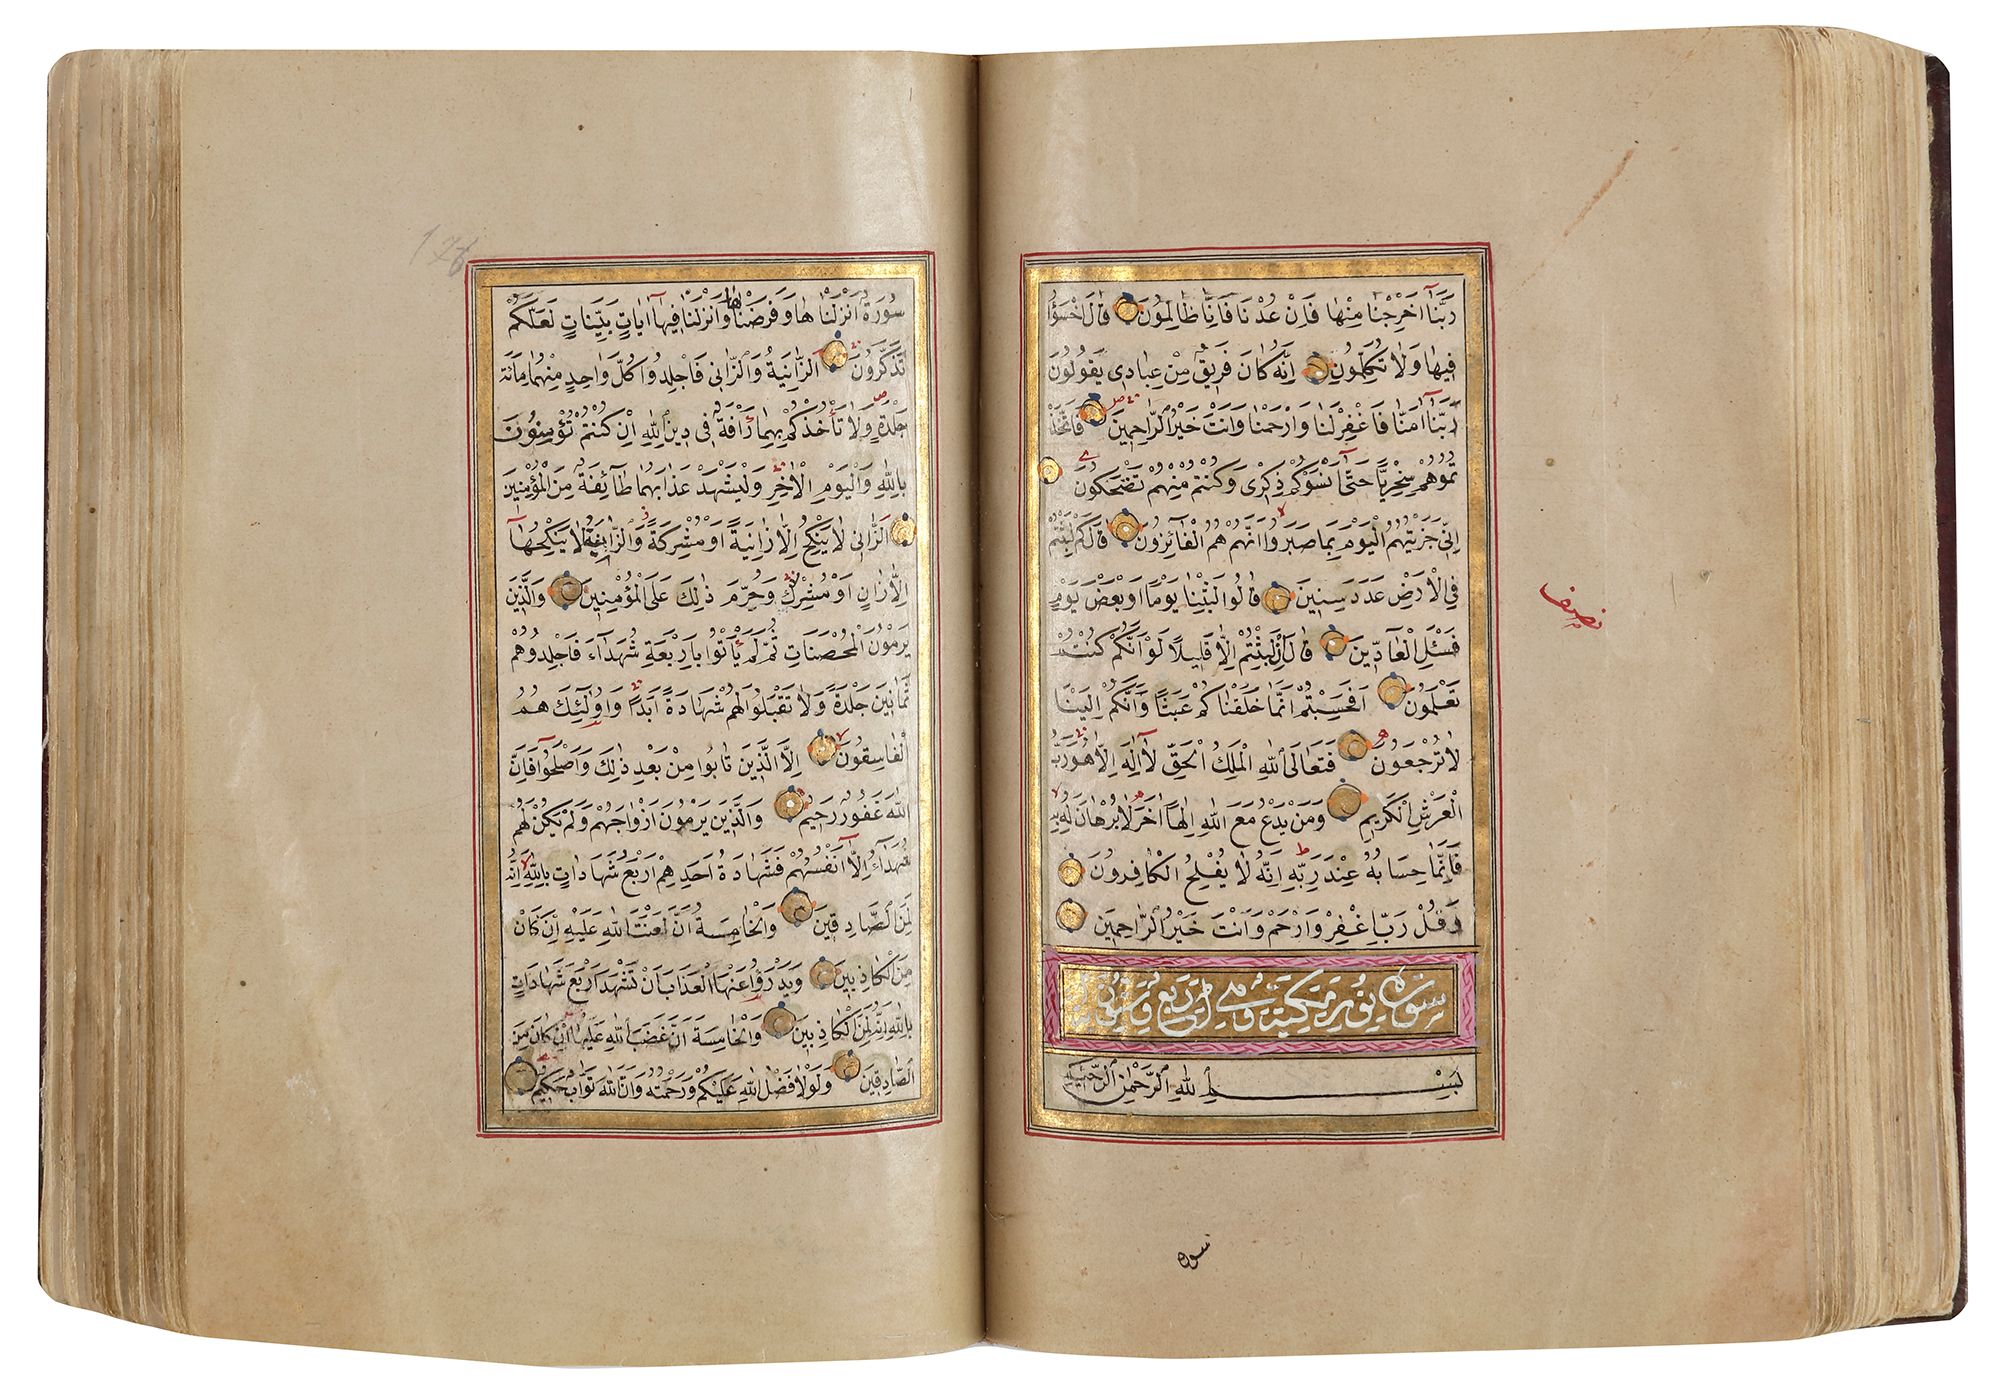 رَبَّنَا اَخْرِجْنَا مِنْهَا فَاِنْ عُدْنَا فَاِنَّا ظَالِمُونَ قَالَ اخْسَؤُا
فِيهَا وَلَا تُكَلِّمُونِ اِنَّهُ كَانَ فَرِيقٌ مِنْ عِبَادِى يَقُولُونَ
رَبَّنَا اٰمَنَّا فَاغْفِرْلَنَا وَارْحَمْنَا وَاَنْتَ خَيْرُ الرَّاحِمِينَ فَاتَّخَذْ
تُمُوهُمْ سِخْرِيًّا حَتّٰى اَنْسَوْكُمْ ذِكْرِى وَكُنْتُمْ مِنْهُمْ تَضْحَكُونَ
اِنِّى جَزَيْتُهُمُ الْيَوْمَ بِمَا صَبَرُوا اَنَّهُمْ هُمُ الْفَائِزُونَ قَالَ كَمْ لَبِثْتُمْ
فِى الْاَرْضِ عَدَدَ سِنِينَ قَالُوا لَبِثْنَا يَوْمًا اَوْ بَعْضَ يَوْمٍ
فَسْئَلِ الْعَادِّينَ قَالَ اِنْ لَبِثْتُمْ اِلَّا قَلِيلًا لَوْ اَنَّكُمْ كُنْتُمْ
تَعْلَمُونَ اَفَحَسِبْتُمْ اَنَّمَا خَلَقْنَاكُمْ عَبَثًا وَاَنَّكُمْ اِلَيْنَا
لَا تُرْجَعُونَ فَتَعَالَى اللهُ الْمَلِكُ الْحَقُّ لَا اِلٰهَ اِلَّا هُوَ رَبُّ
الْعَرْشِ الْكَرِيمِ وَمَنْ يَدْعُ مَعَ اللهِ اِلٰهًا اٰخَرَ لَا بُرْهَانَ لَهُ بِهِ
فَاِنَّمَا حِسَابُهُ عِنْدَ رَبِّهِ اِنَّهُ لَا يُفْلِحُ الْكَافِرُونَ
وَقُلْ رَبِّ اغْفِرْ وَارْحَمْ وَاَنْتَ خَيْرُ الرَّاحِمِينَ
سورة نور مكية وهى اربع وستون
بِسْمِ اللهِ الرَّحْمٰنِ الرَّحِيمِ
نصف
سورة
176
سُورَةٌ اَنْزَلْنَاهَا وَفَرَضْنَاهَا وَاَنْزَلْنَا فِيهَا اٰيَاتٍ بَيِّنَاتٍ لَعَلَّكُمْ
تَذَكَّرُونَ اَلزَّانِيَةُ وَالزَّانِى فَاجْلِدُوا كُلَّ وَاحِدٍ مِنْهُمَا مِائَةَ
جَلْدَةٍ وَلَا تَأْخُذْكُمْ بِهِمَا رَأْفَةٌ فِى دِينِ اللهِ اِنْ كُنْتُمْ تُؤْمِنُونَ
بِاللهِ وَالْيَوْمِ الْاٰخِرِ وَلْيَشْهَدْ عَذَابَهُمَا طَائِفَةٌ مِنَ الْمُؤْمِنِينَ
اَلزَّانِى لَا يَنْكِحُ اِلَّا زَانِيَةً اَوْ مُشْرِكَةً وَالزَّانِيَةُ لَا يَنْكِحُهَا
اِلَّا زَانٍ اَوْ مُشْرِكٌ وَحُرِّمَ ذٰلِكَ عَلَى الْمُؤْمِنِينَ وَالَّذِينَ
يَرْمُونَ الْمُحْصَنَاتِ ثُمَّ لَمْ يَأْتُوا بِاَرْبَعَةِ شُهَدَاءَ فَاجْلِدُوهُمْ
ثَمَانِينَ جَلْدَةً وَلَا تَقْبَلُوا لَهُمْ شَهَادَةً اَبَدًا وَاُولٰئِكَ هُمُ
الْفَاسِقُونَ اِلَّا الَّذِينَ تَابُوا مِنْ بَعْدِ ذٰلِكَ وَاَصْلَحُوا فَاِنَّ
اللهَ غَفُورٌ رَحِيمٌ وَالَّذِينَ يَرْمُونَ اَزْوَاجَهُمْ وَلَمْ يَكُنْ لَهُمْ
شُهَدَاءُ اِلَّا اَنْفُسُهُمْ فَشَهَادَةُ اَحَدِهِمْ اَرْبَعُ شَهَادَاتٍ بِاللهِ اِنَّهُ
لَمِنَ الصَّادِقِينَ وَالْخَامِسَةُ اَنَّ لَعْنَتَ اللهِ عَلَيْهِ اِنْ كَانَ
مِنَ الْكَاذِبِينَ وَيَدْرَؤُا عَنْهَا الْعَذَابَ اَنْ تَشْهَدَ اَرْبَعَ شَهَادَاتٍ
بِاللهِ اِنَّهُ لَمِنَ الْكَاذِبِينَ وَالْخَامِسَةَ اَنَّ غَضَبَ اللهِ عَلَيْهَا اِنْ كَانَ مِنَ
الصَّادِقِينَ وَلَوْلَا فَضْلُ اللهِ عَلَيْكُمْ وَرَحْمَتُهُ وَاَنَّ اللهَ تَوَّابٌ حَكِيمٌ